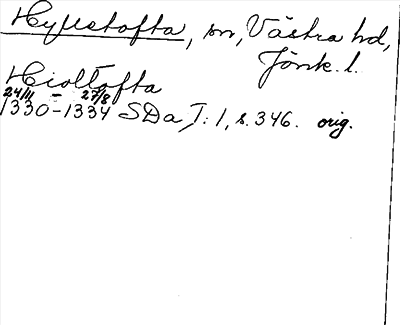 Hyllstofta, sn, Västra hd,
Jönk. l.
Hioltofta
24/11 - 27/8
1330-1334 SDa, I: 1, s. 346. orig.